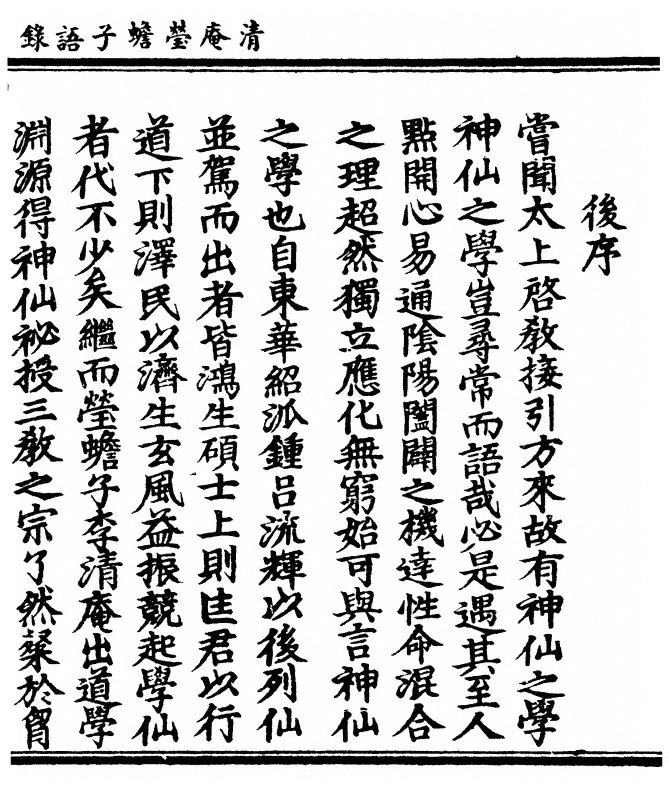 清庵瑩蟾子語錄
後序
嘗聞太上啓教接引方來故有神仙之學
神仙之學豈尋常而語哉必是遇其至人
點開心易通陰陽闔闢之機達性命混合
之理超然獨立應化無窮始可與言神仙
之學也自東華紹派鍾呂流輝以後列仙
並駕而出者皆鴻生碩士上則匡君以行
道下則澤民以濟生玄風益振競起學仙
者代不少矣繼而瑩蟾子李清庵出道學
淵源得神仙祕授三教之宗了然粲於胷